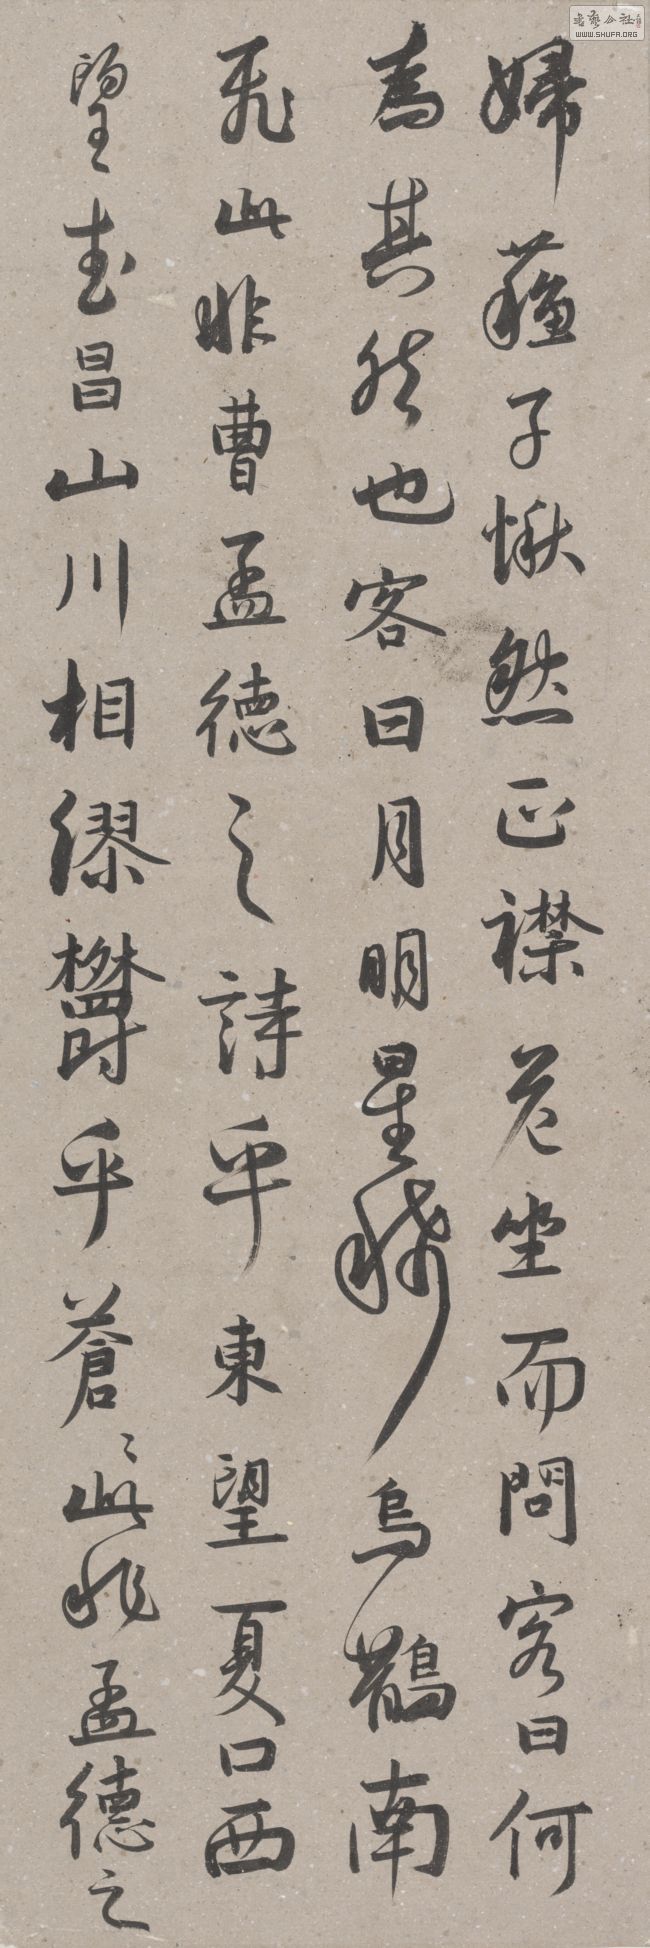 婦蘇子愀然正襟危坐而問客曰何
為其然也客曰月明星稀烏鵲南
飛此非曹孟德之詩乎東望夏口西
望武昌山川相繆鬱乎蒼〻此非孟德之
書藝公社
WWW.SHUFA.ORG